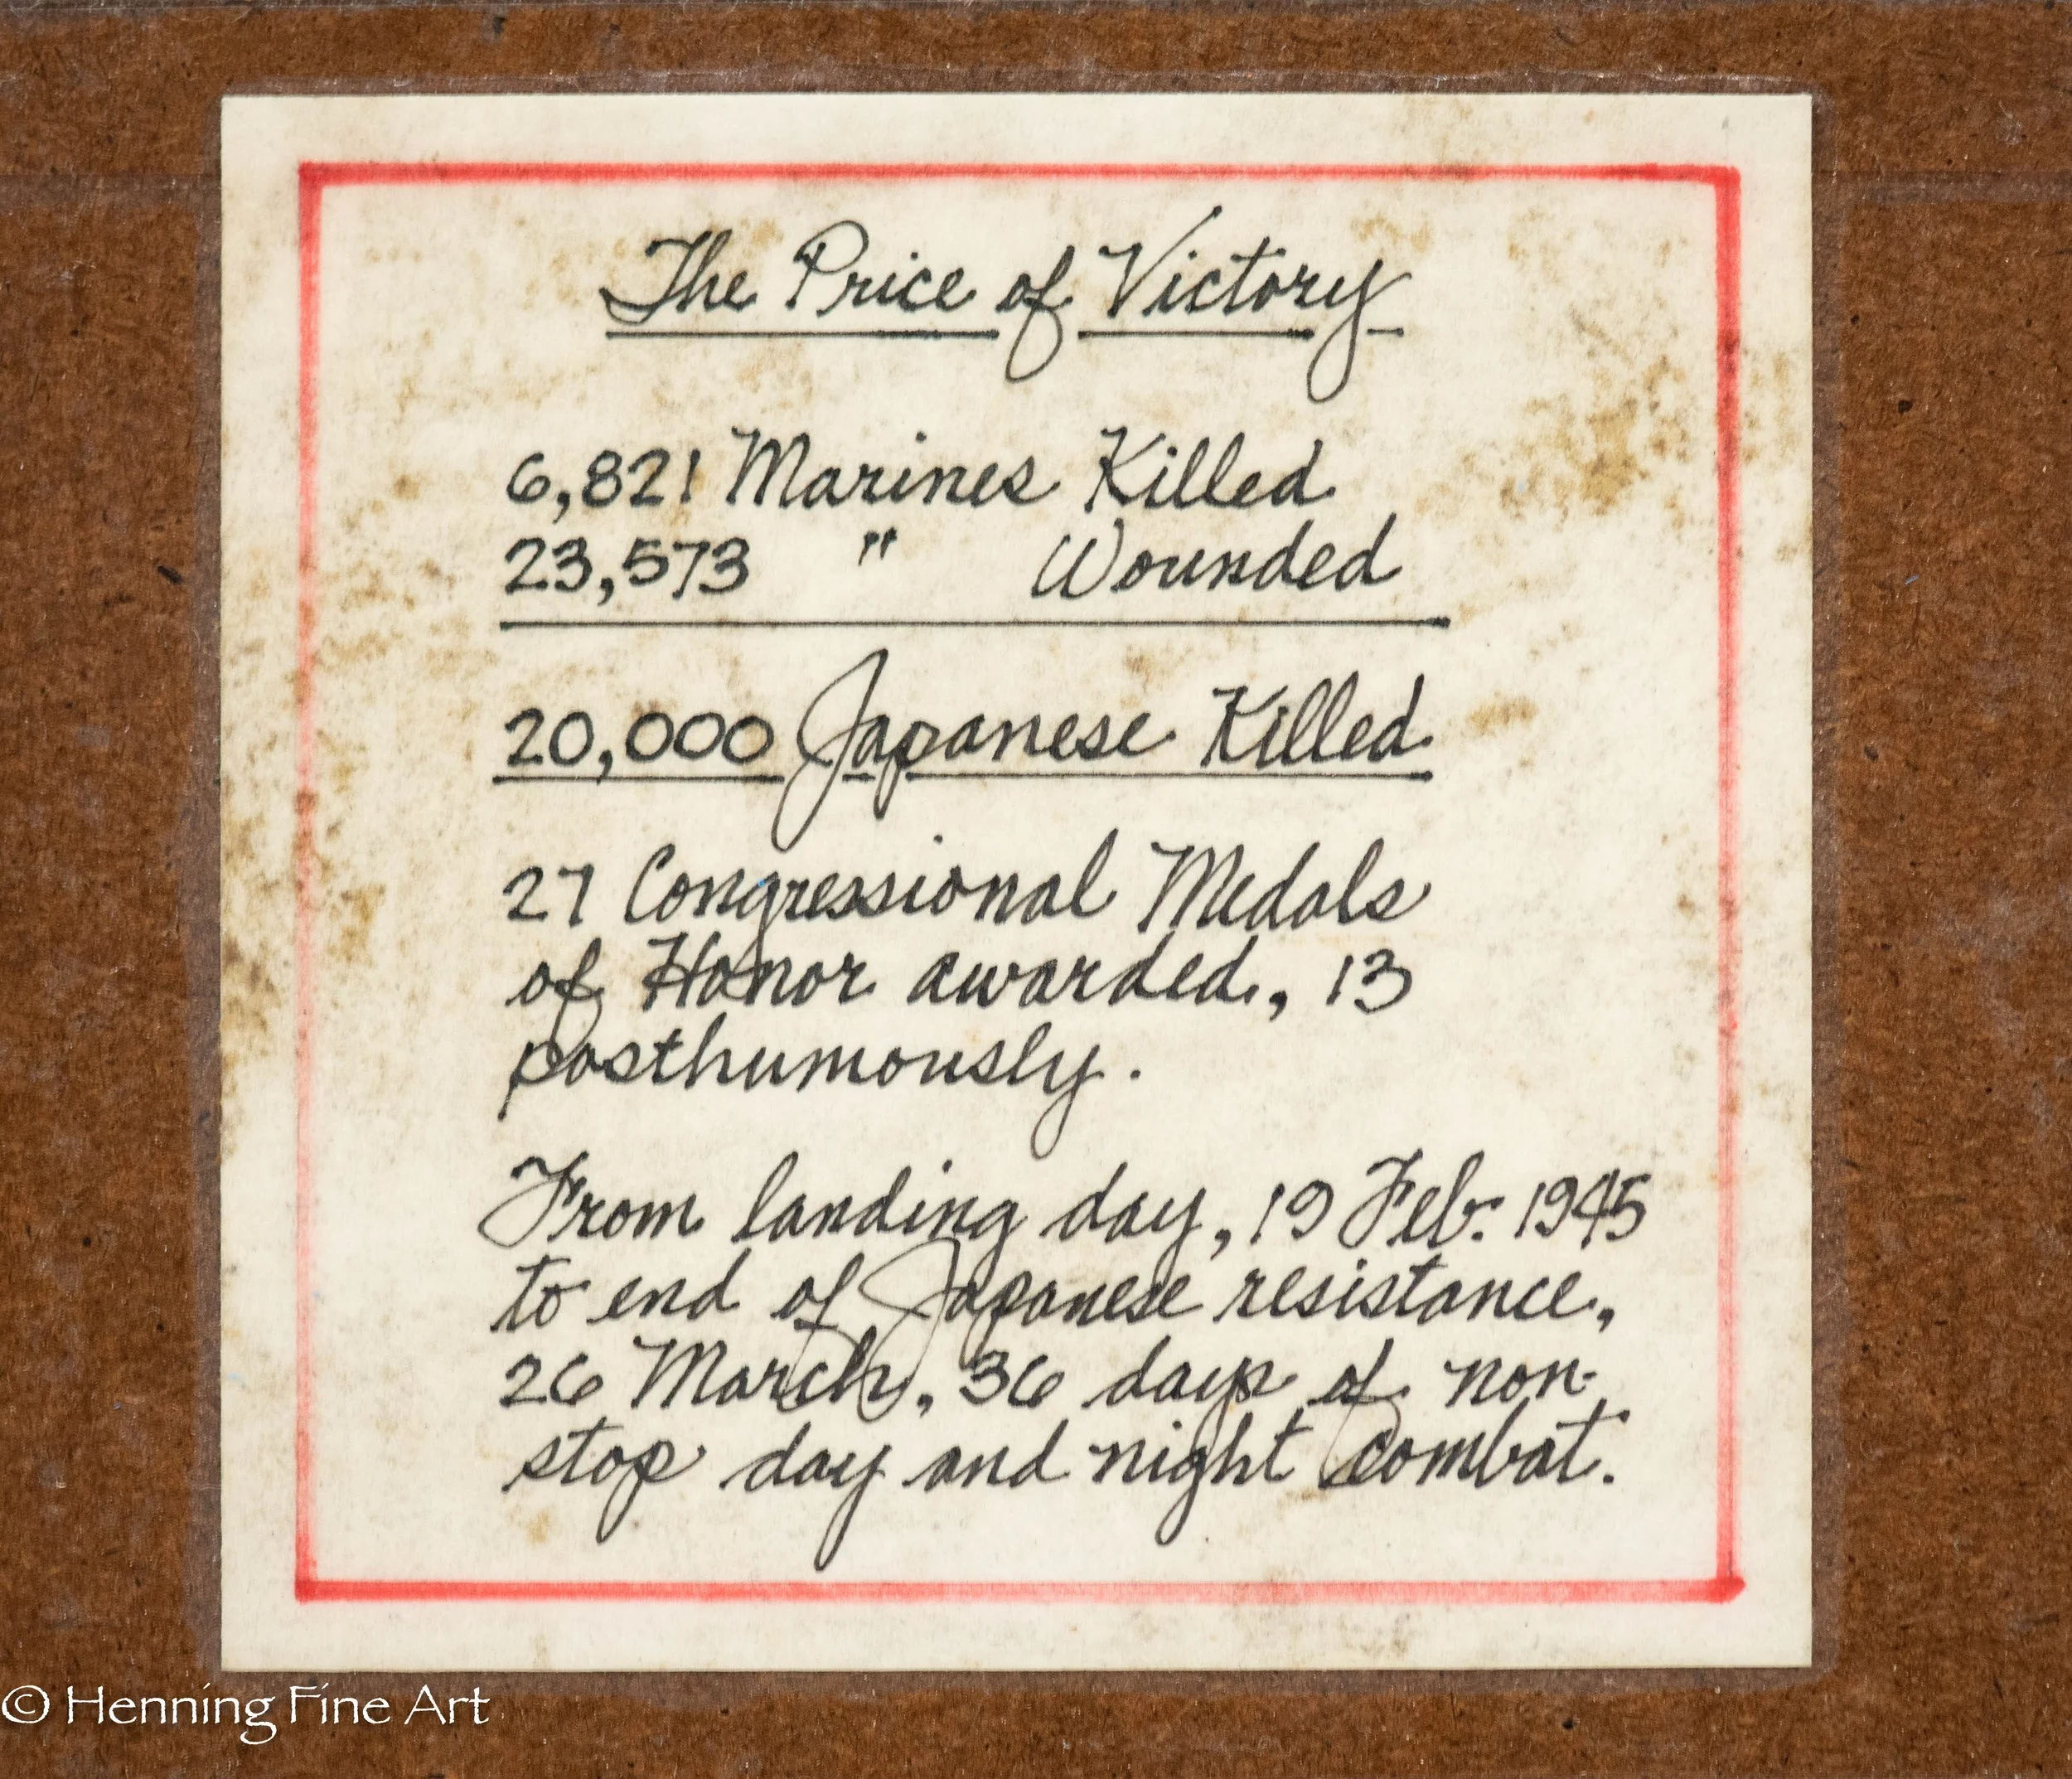 The Price of Victory
6,821 Marines Killed
23,573 " Wounded
20,000 Japanese Killed
27 Congressional Medals
of Honor awarded, 13
posthumously.
From landing day, 19 Feb. 1945
to end of Japanese resistance,
26 March, 36 days of non-
stop day and night combat.
© Henning Fine Art